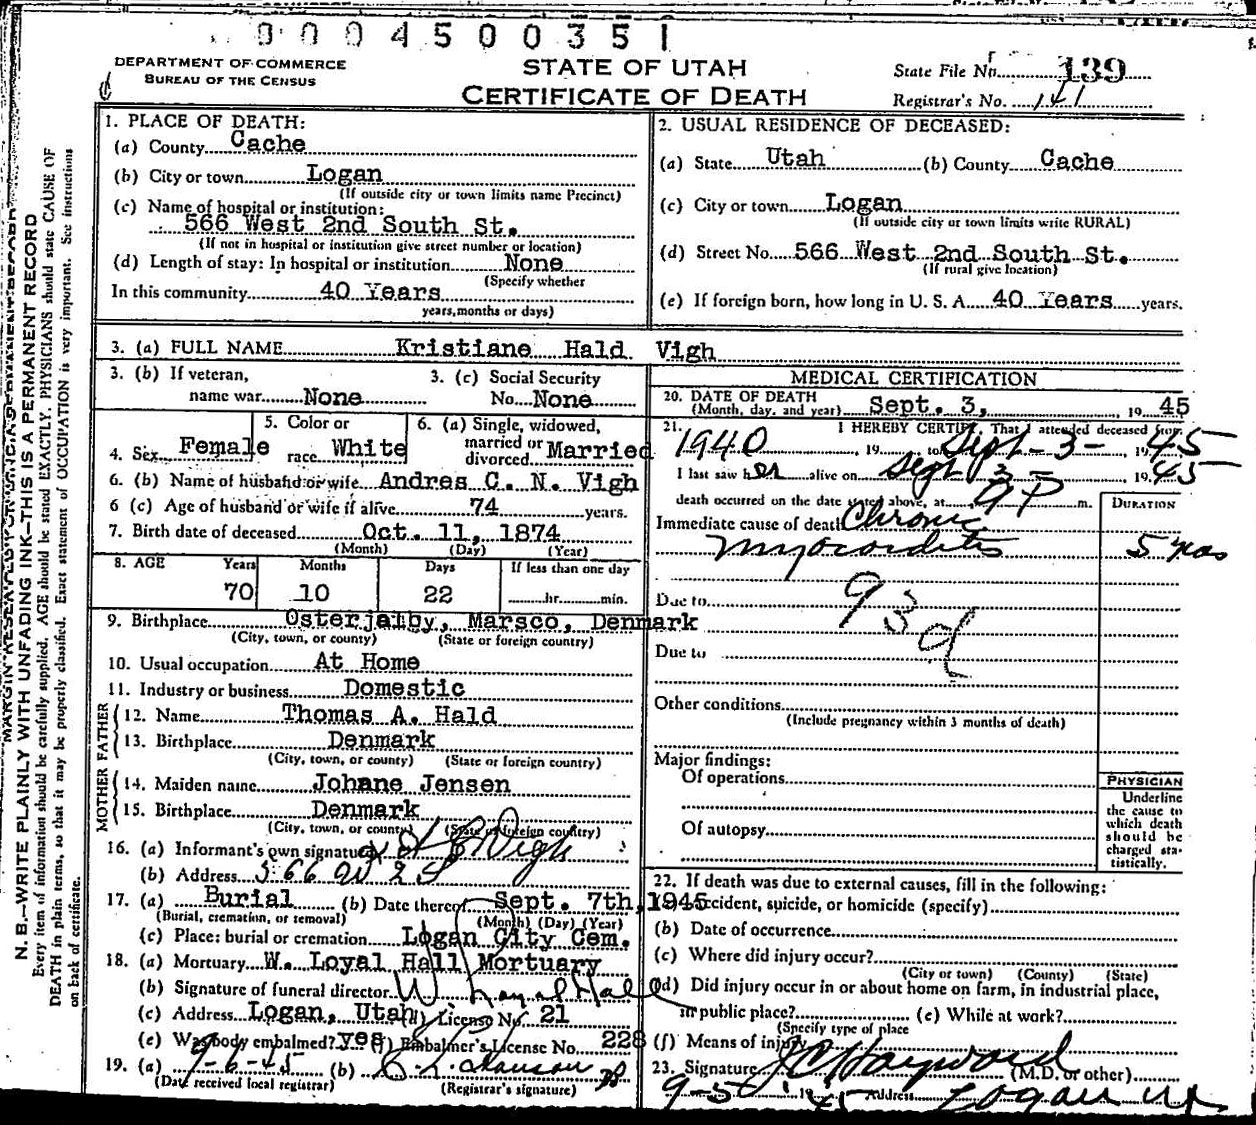 0004500351
DEPARTMENT OF COMMERCE
BUREAU OF THE CENSUS
STATE OF UTAH
CERTIFICATE OF DEATH
State File No. 139
Registrar's No. 141
N. B.—WRITE PLAINLY WITH UNFADING INK—THIS IS A PERMANENT RECORD
Every item of information should be carefully supplied. AGE should be stated EXACTLY. PHYSICIANS should state CAUSE OF
DEATH in plain terms, so that it may be properly classified. Exact statement of OCCUPATION is very important. See instructions
on back of certificate.
1. PLACE OF DEATH:
(a) County Cache
(b) City or town Logan
(If outside city or town limits name Precinct)
(c) Name of hospital or institution:
566 West 2nd South St.
(If not in hospital or institution give street number or location)
(d) Length of stay: In hospital or institution None
(Specify whether
In this community 40 Years
years, months or days)
2. USUAL RESIDENCE OF DECEASED:
(a) State Utah (b) County Cache
(c) City or town Logan
(If outside city or town limits write RURAL)
(d) Street No. 566 West 2nd South St.
(If rural give location)
(e) If foreign born, how long in U. S. A. 40 Years years.
3. (a) FULL NAME Kristiane Hald Vigh
3. (b) If veteran, name war None
3. (c) Social Security No. None
4. Sex Female
5. Color or race White
6. (a) Single, widowed, married or divorced Married
6. (b) Name of husband or wife Andres C. N. Vigh
6 (c) Age of husband or wife if alive 74 years.
7. Birth date of deceased Oct. 11, 1874
(Month) (Day) (Year)
8. AGE Years Months Days If less than one day
70 10 22 hr. min.
9. Birthplace Osterjalby, Marsco, Denmark
(City, town, or county) (State or foreign country)
10. Usual occupation At Home
11. Industry or business Domestic
FATHER
12. Name Thomas A. Hald
13. Birthplace Denmark
(City, town, or county) (State or foreign country)
MOTHER
14. Maiden name Johane Jensen
15. Birthplace Denmark
(City, town, or county) (State or foreign country)
16. (a) Informant's own signature Vigh
(b) Address 566 W 2 S
17. (a) Burial (b) Date thereof Sept. 7th, 1945
(Burial, cremation, or removal) (Month) (Day) (Year)
(c) Place: burial or cremation Logan City Cem.
18. (a) Mortuary W. Loyal Hall Mortuary
(b) Signature of funeral director W. Loyal Hall
(c) Address Logan, Utah (d) License No. 21
(e) Was body embalmed? yes (f) Embalmer's License No. 228
19. (a) 9-6-45 (b)
(Date received local registrar) (Registrar's signature)
MEDICAL CERTIFICATION
20. DATE OF DEATH
(Month, day, and year) Sept. 3, 19 45
21. I HEREBY CERTIFY, That I attended deceased from
1940, 19 to Sept-3-1945
I last saw her alive on Sept 3- 1945
death occurred on the date stated above, at 9 P m.
DURATION
Immediate cause of death Chronic
myocarditis 5 yrs
Due to
93d
Due to
Other conditions
(Include pregnancy within 3 months of death)
Major findings:
Of operations
Of autopsy
PHYSICIAN
Underline
the cause to
which death
should be
charged sta-
tistically.
22. If death was due to external causes, fill in the following:
Accident, suicide, or homicide (specify)
(b) Date of occurrence
(c) Where did injury occur?
(City or town) (County) (State)
(d) Did injury occur in or about home on farm, in industrial place,
in public place? (e) While at work?
(Specify type of place
(f) Means of injury
23. Signature J C Hayward (M.D. or other)
9-5 '45 Address Logan Ut